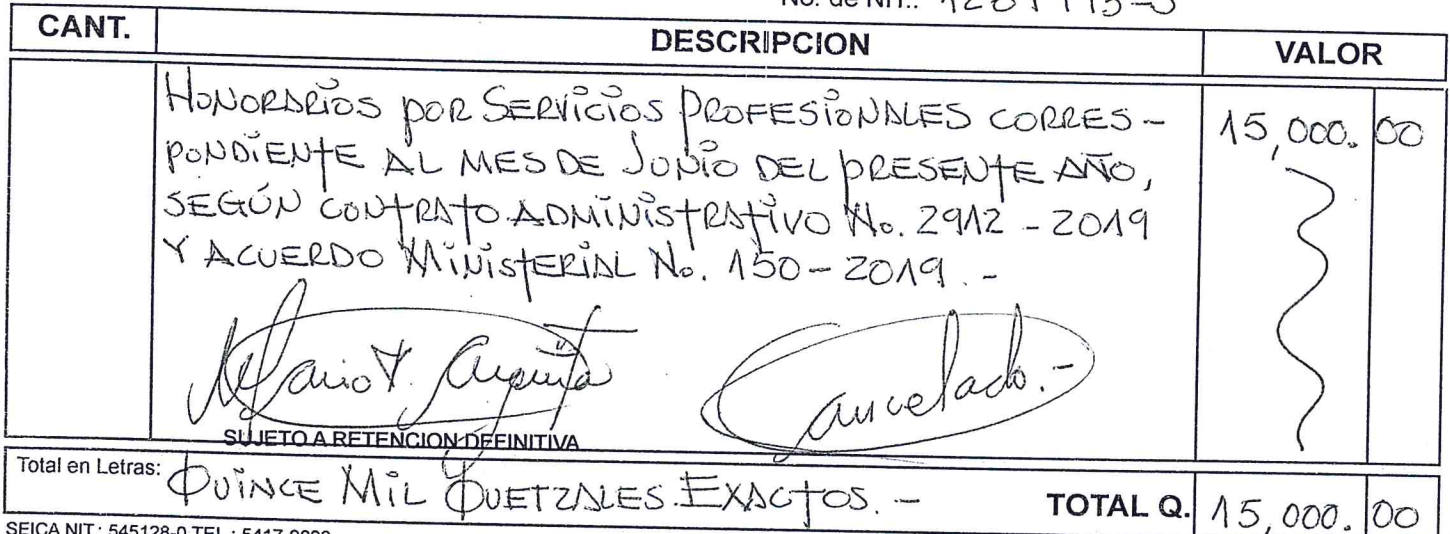 No. de NIT.:
CANT. DESCRIPCION VALOR
HONORARIOS POR SERVICIOS PROFESIONALES CORRES- 15,000.00
PONDIENTE AL MES DE JUNIO DEL PRESENTE AÑO,
SEGÚN CONTRATO ADMINISTRATIVO No. 2912-2019
Y ACUERDO MINISTERIAL No. 150-2019.-
Mario Cancelado.-
SUJETO A RETENCION DEFINITIVA
Total en Letras: QUINCE MIL QUETZALES EXACTOS.- TOTAL Q. 15,000.00
SEICA NIT.: 545128-0 TEL.: